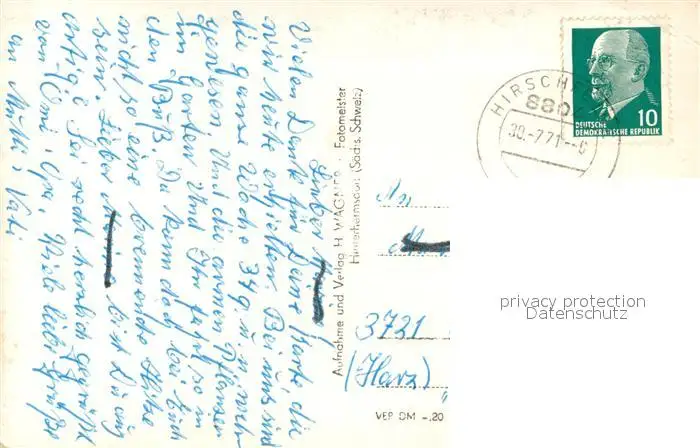 Lieber
Vielen Dank für Deine Karte die
wir heute erhielten. Bei uns sind
die ganze Woche 34 g. u. noch
gewesen Und die armen Pflanzen
im Garten Und Ihr fahrt so in
den Du kein daß bei Euch
nicht so eine brennende Hitze
sein Lieber bist Du auch
artig? Sei recht herzlich gegrüßt
von Omi, Opa, Viele liebe Grüße
an Mutti, Vati
Aufnahme und Verlag H. WAGNER, Fotomeister
Hinterhermsdorf (Sächs. Schweiz)
HIRSCHF
8802
30.-7.71.-6
10
DEUTSCHE
DEMOKRATISCHE REPUBLIK
An
3721
(Harz)
VEP DM -.20
privacy protection
Datenschutz